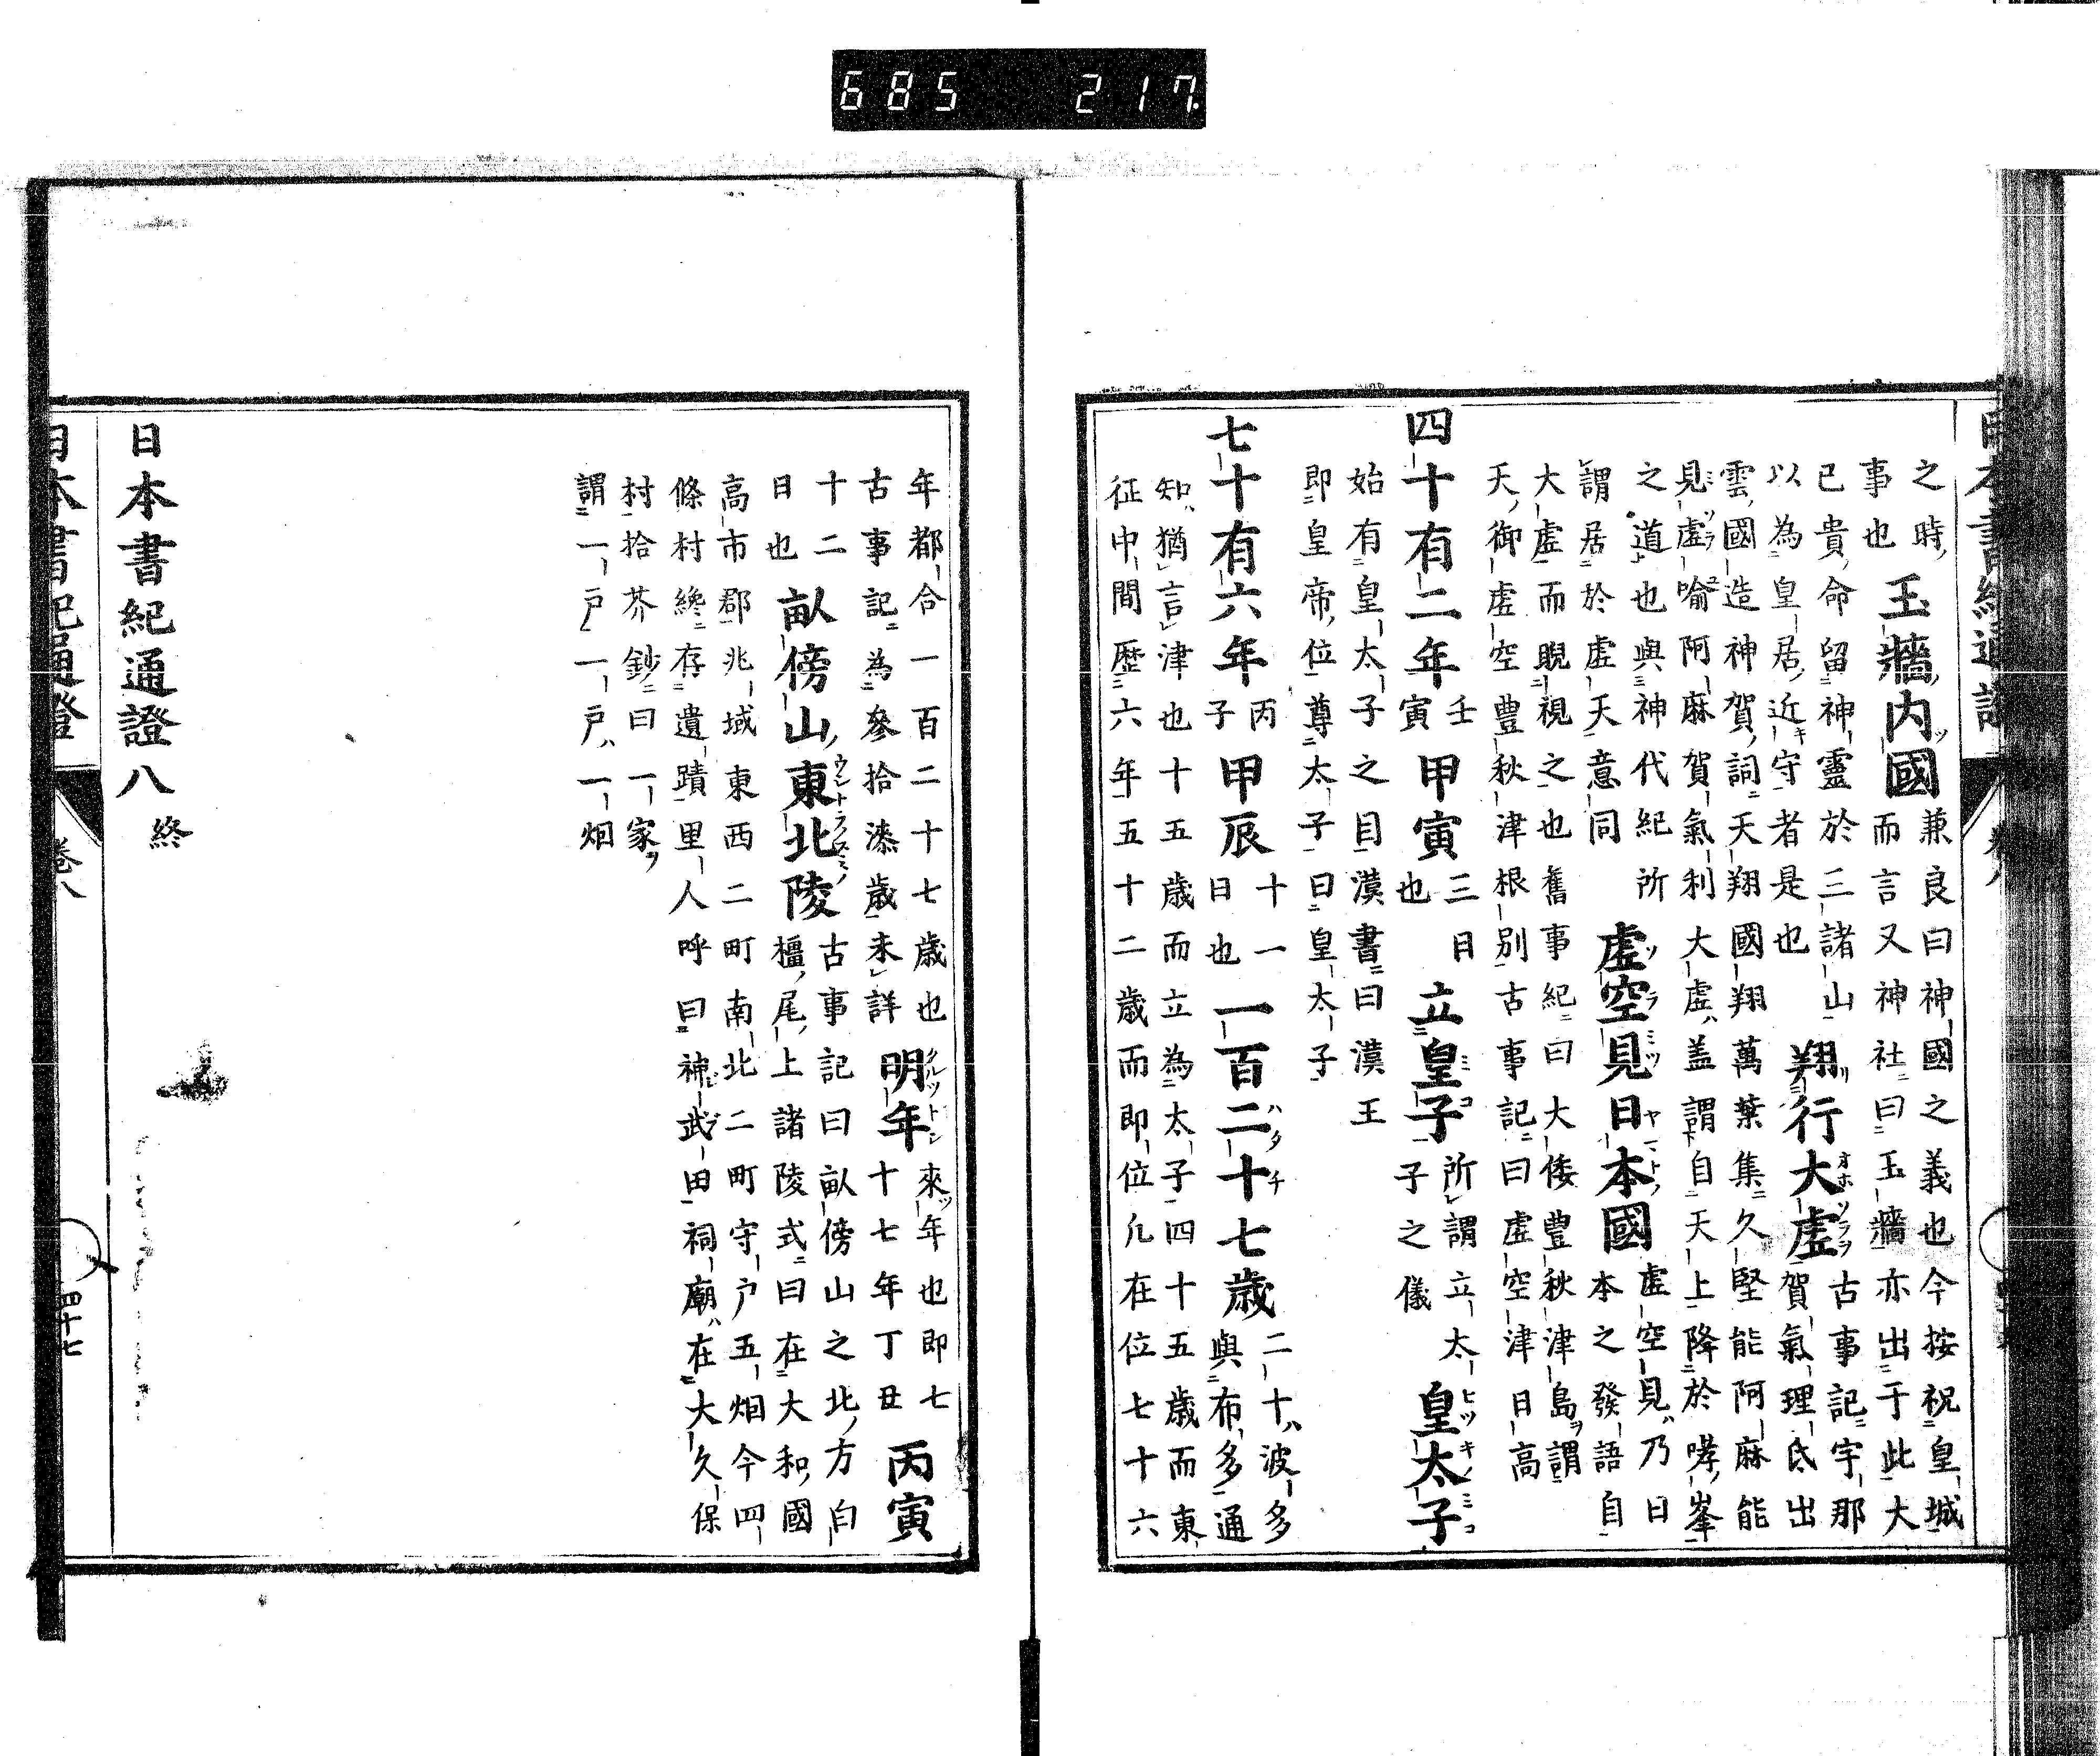 之時
事也
玉牆内國
兼良曰神國之義也今按祝皇城
而言又神社曰玉牆亦出于此大
已貴命留神靈於三諸山
以為皇居近守者是也
翔行大虚
古事記宇那
賀氣理氐出
雲國造神賀詞天翔國翔萬葉集久堅能阿麻能
見虚喻阿麻賀氣利大虚盖謂自天上降於哮峯
之道也與神代紀所
謂居於虚天意同
虚空見日本國
虚空見乃日
本之發語自
大虚而睨視之也舊事紀曰大倭豊秋津島謂
天御虚空豊秋津根別古事記曰虚空津日高
四十有二年
壬
寅
甲寅
三日
也
立皇子
所謂立太
子之儀
皇太子
始有皇太子之目漢書曰漢王
即皇帝位尊太子曰皇太子
七十有六年
丙
子
甲辰
十一
日也
一百二十七歳
二十波多
與布多通
知猶言津也十五歳而立為太子四十五歳而東
征中間歴六年五十二歳而即位凡在位七十六
年都合一百二十七歳也
古事記為參拾漆歳未詳
明年
來年也即七
十七年丁丑
丙寅
十二
日也
畝傍山東北陵
古事記曰畝傍山之北方白
橿尾上諸陵式曰在大和國
高市郡兆域東西二町南北二町守戸五烟今四
條村纔存遺蹟里人呼曰神武田祠廟在大久保
村拾芥鈔曰一家
謂一戸一戸一烟
日本書紀通證八 終
日本書紀通證 卷八 四十七